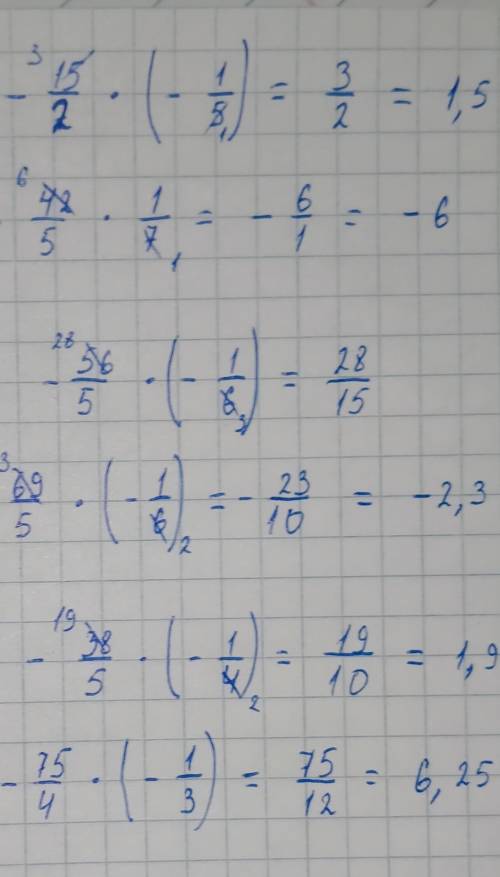 - 15/2 · (- 1/5) = 3/2 = 1,5
42/5 · 1/7 = - 6/1 = - 6
- 56/5 · (- 1/6) = 28/15
69/5 · (- 1/6) = - 23/10 = - 2,3
- 38/5 · (- 1/4) = 19/10 = 1,9
- 75/4 · (- 1/3) = 75/12 = 6,25